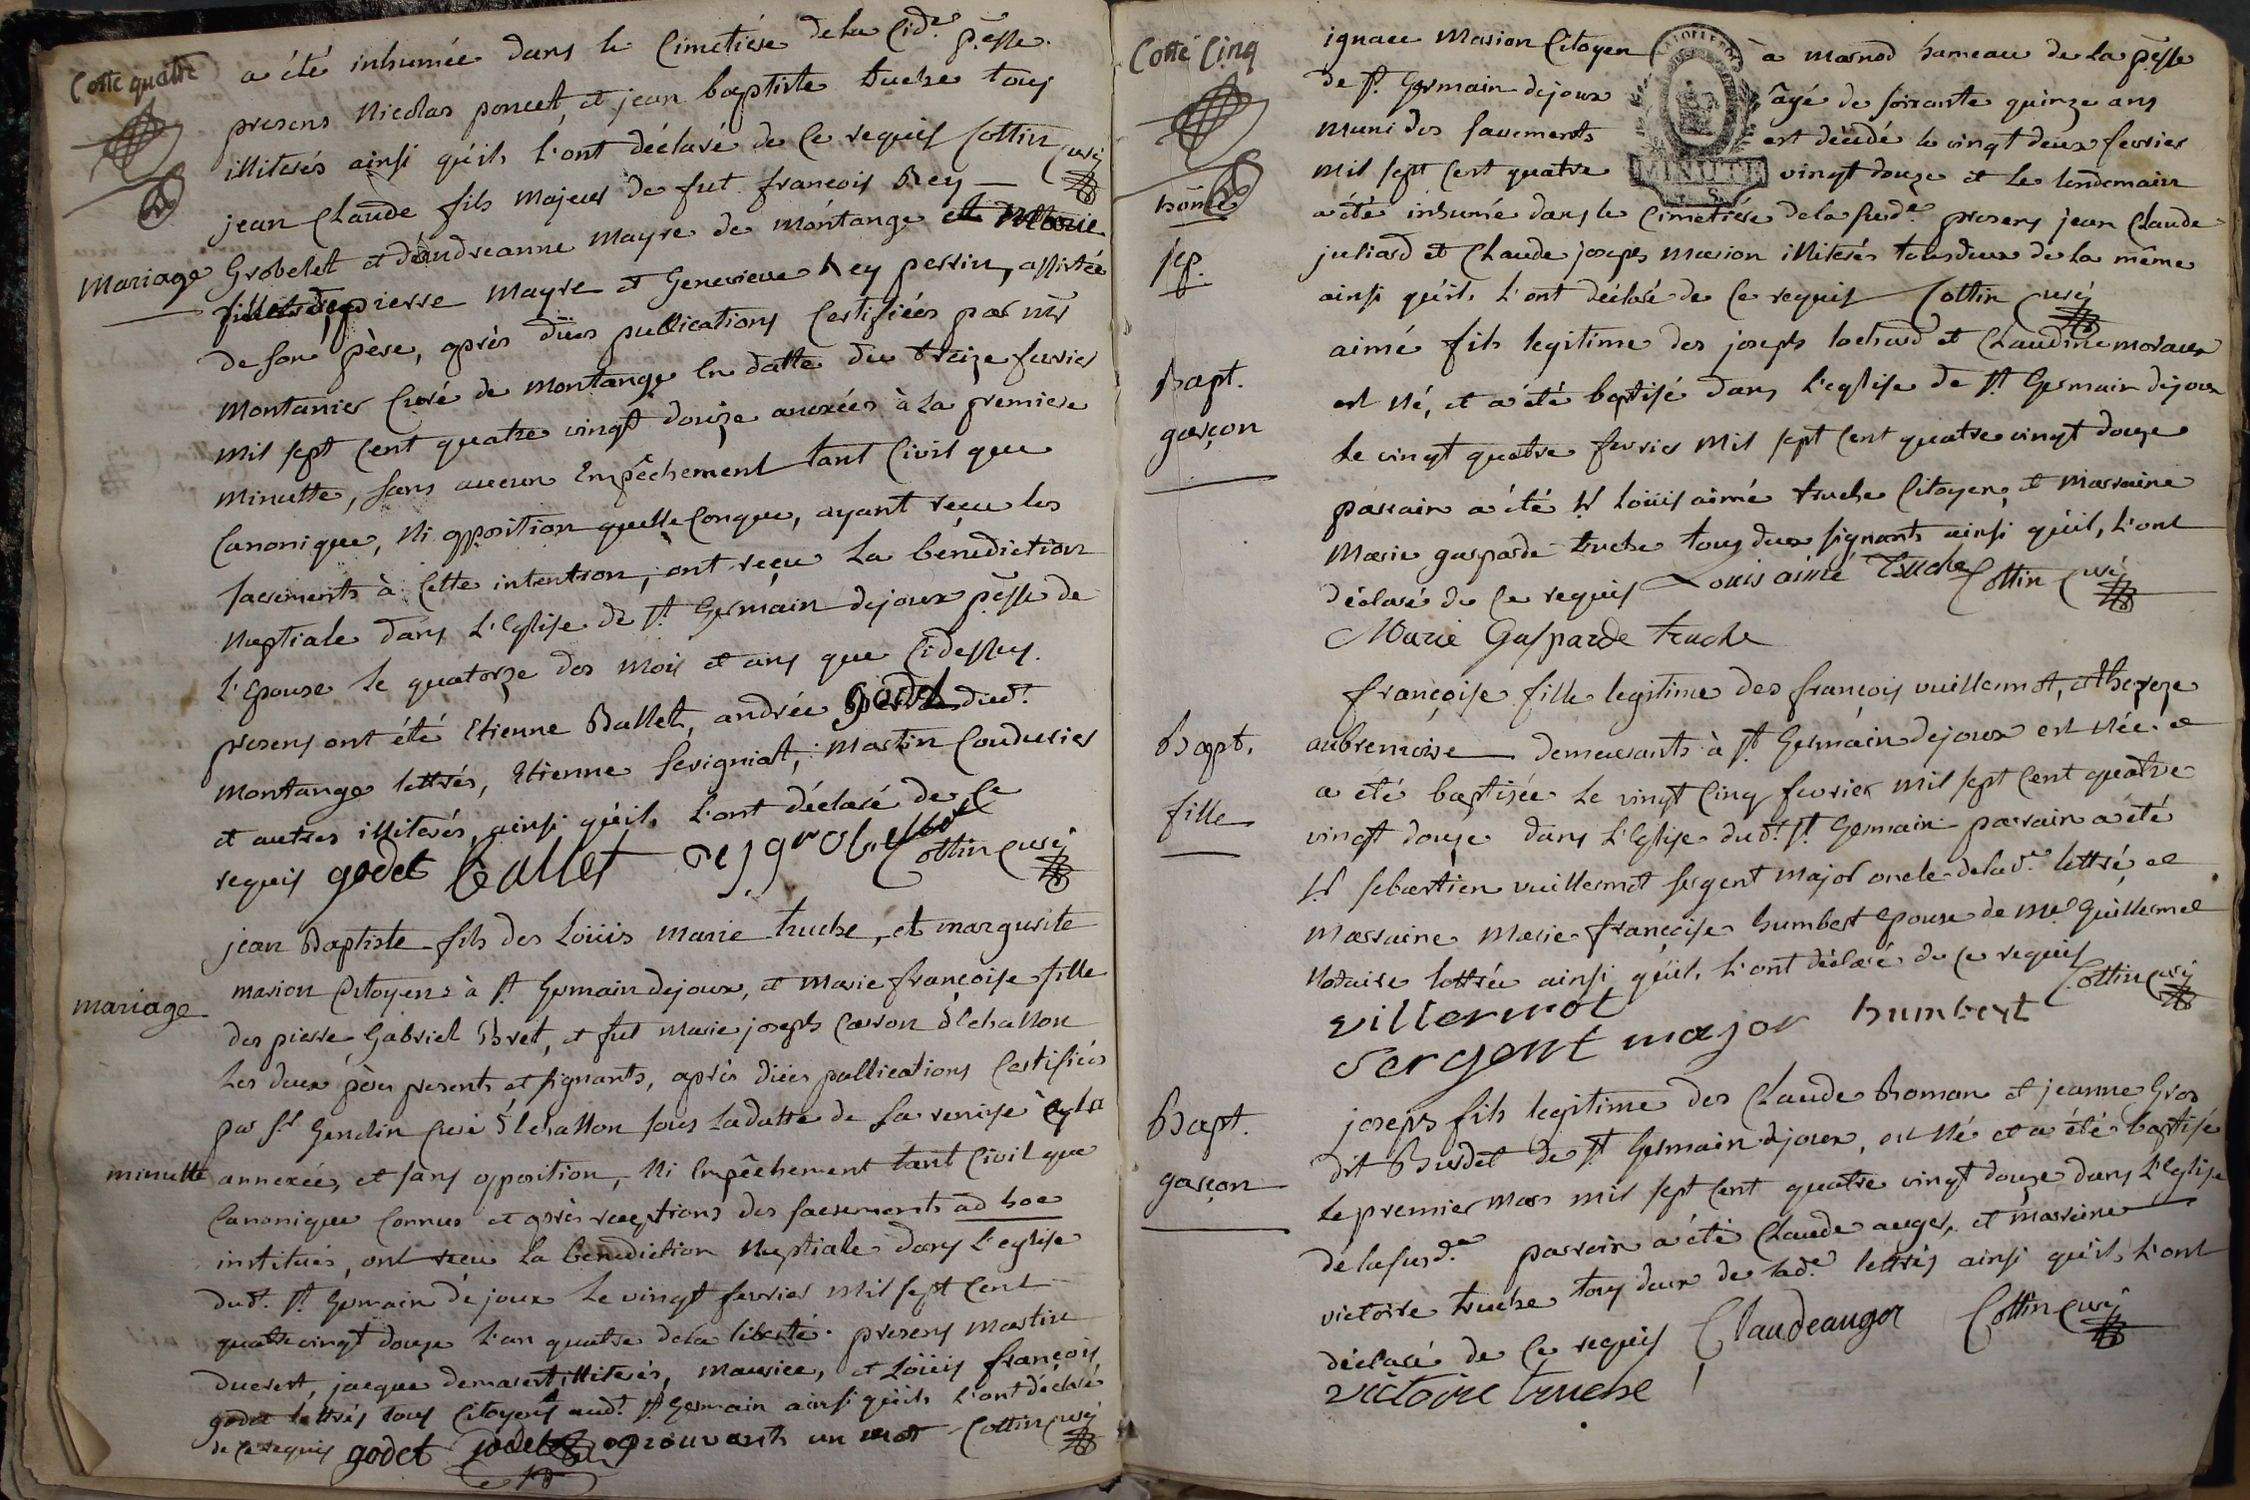 Cotte quatre
a été inhumée dans le Cimetière de la Cid.e p.sse
presens Nicolas poncet, et jean baptiste truche tous
illiterés ainsi qu'ils l'ont déclaré de ce requis Cottin Curé
jean Claude fils majeur de fut françois Rey
Mariage
Grobelet et d'andreanne Mayre de montange et
pierre Mayre et Genevieve Rey perrin, assistée
de son père, après dües publications Certifiées par mr
Montanier Curé de Montange en datte du treize fevrier
Mil sept Cent quatre vingt douze anexées à la premiere
Minutte, sans aucun Empêchement tant Civil que
Canonique, Ni opposition quelle Conque, ayant reçu les
sacrements à Cette intention, ont reçu la bénédiction
Nuptiale dans L'Eglise de St Germain dejoux p.sse de
L'Epouse le quatorze des mois et ans que Cidessus.
presens ont été Etienne Ballet, andrée godet dud.t
Montange lettrés, Etienne Sevigniat, Martin Coudurier
et autres illiterés, ainsi qu'ils l'ont déclaré de Ce
requis godet Ballet rey grobellet Cottin Curé
jean Baptiste fils des Loüis Marie truche, et margurite
marion Citoyens à St Germain dejoux, et Marie françoise fille
mariage
des pierre Gabriel Bret, et fut Marie joseph Carron d'Echallon
Les deux pères presents et signants, après dües publications Certifiées
par Sr Gendin Curé d'Echallon sous La datte de La remise
minutte
annexée, et sans opposition, Ni Empêchement tant Civil que
Canonique Connus et après receptions des sacrements ad hoc
institués, ont reçu La benediction Nuptiale dans L'eglise
dud.t St Germain de joux Le vingt fevrier Mil sept Cent
quatre vingt douze L'an quatre de la liberté. presens Martin
ducrest, jacque demarest illiterés, Maurice, et Loüis françois
godet lettrés tous Citoyens aud.t St Germain ainsi qu'ils l'ont déclaré
de Ce requis godet godet aprouvants un mot Cottin Curé
Cotte Cinq
ignace Marion Citoyen à marnod hameau de La p.sse
de St Germain dejoux âgé de soixante quinze ans
Muni des sacrements est décédé le vingt deux fevrier
MINUTTE
Mil sept Cent quatre vingt douze et Le lendemain
homme
a été inhumé dans le Cimetière de la susd.e presens jean Claude
sep.
juliard et Claude joseph marion illiterés tous deux de La même
ainsi qu'ils l'ont déclaré de Ce requis Cottin Curé
aimé fils legitime des joseph lochard et Claudine moraux
Bapt.
garçon
est Né, et a été baptisé dans L'eglise de St Germain dejoux
Le vingt quatre fevrier Mil sept Cent quatre vingt douze
parrain a été Sr Loüis aimé truche Citoyen, et Marraine
Marie gasparde truche tous deux signants ainsi qu'ils l'ont
déclaré de Ce requis Louis aimé Truche Cottin Curé
Marie Gasparde truche
françoise fille legitime des françois vuillermot, et
Bapt.
fille
demeurants à St Germain dejoux est Née et
a été baptisée Le vingt Cinq fevrier Mil sept Cent quatre
vingt douze dans L'Eglise dud.t St Germain parrain a été
Sr sebastien vuillermot sergent major oncle de lad.e lettré et
Marraine Marie françoise humbert Epouse de Me Guillermet
Notaire lettrée ainsi qu'ils l'ont déclaré de ce requis
Cottin Curé
villermot
Sergent major humbert
Bapt.
garçon
joseph fils legitime des Claude Roman et jeanne Gros
dit Burdet de St Germain dejoux, est Né et a été baptisé
Le premier Mars Mil sept Cent quatre vingt douze dans L'Eglise
de la susd.e parrain a été Claude auger, et marraine
victoire truche tous deux de lad.e lettrés ainsi qu'ils l'ont
déclaré de Ce requis Claude auger Cottin Curé
victoire truche